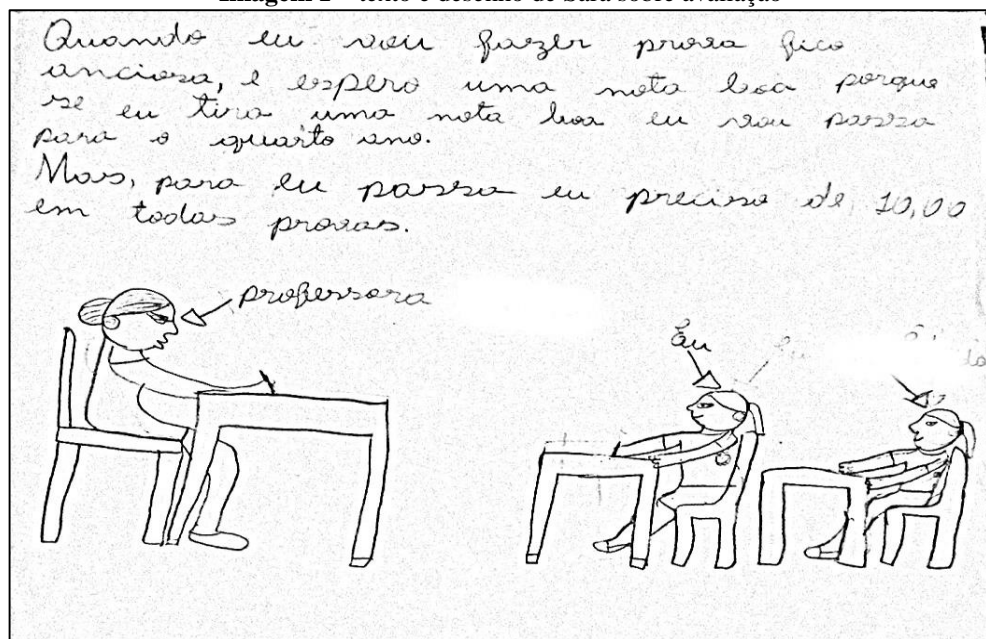 Imagem 2 – texto e desenho de Sara sobre avaliação
Quando eu vou fazer prova fico
anciosa, e espero uma nota boa porque
se eu tira uma nota boa eu vou passa
para o quarto ano.
Mas, para eu passa eu preciso de 10,00
em todas provas.
professora
Eu